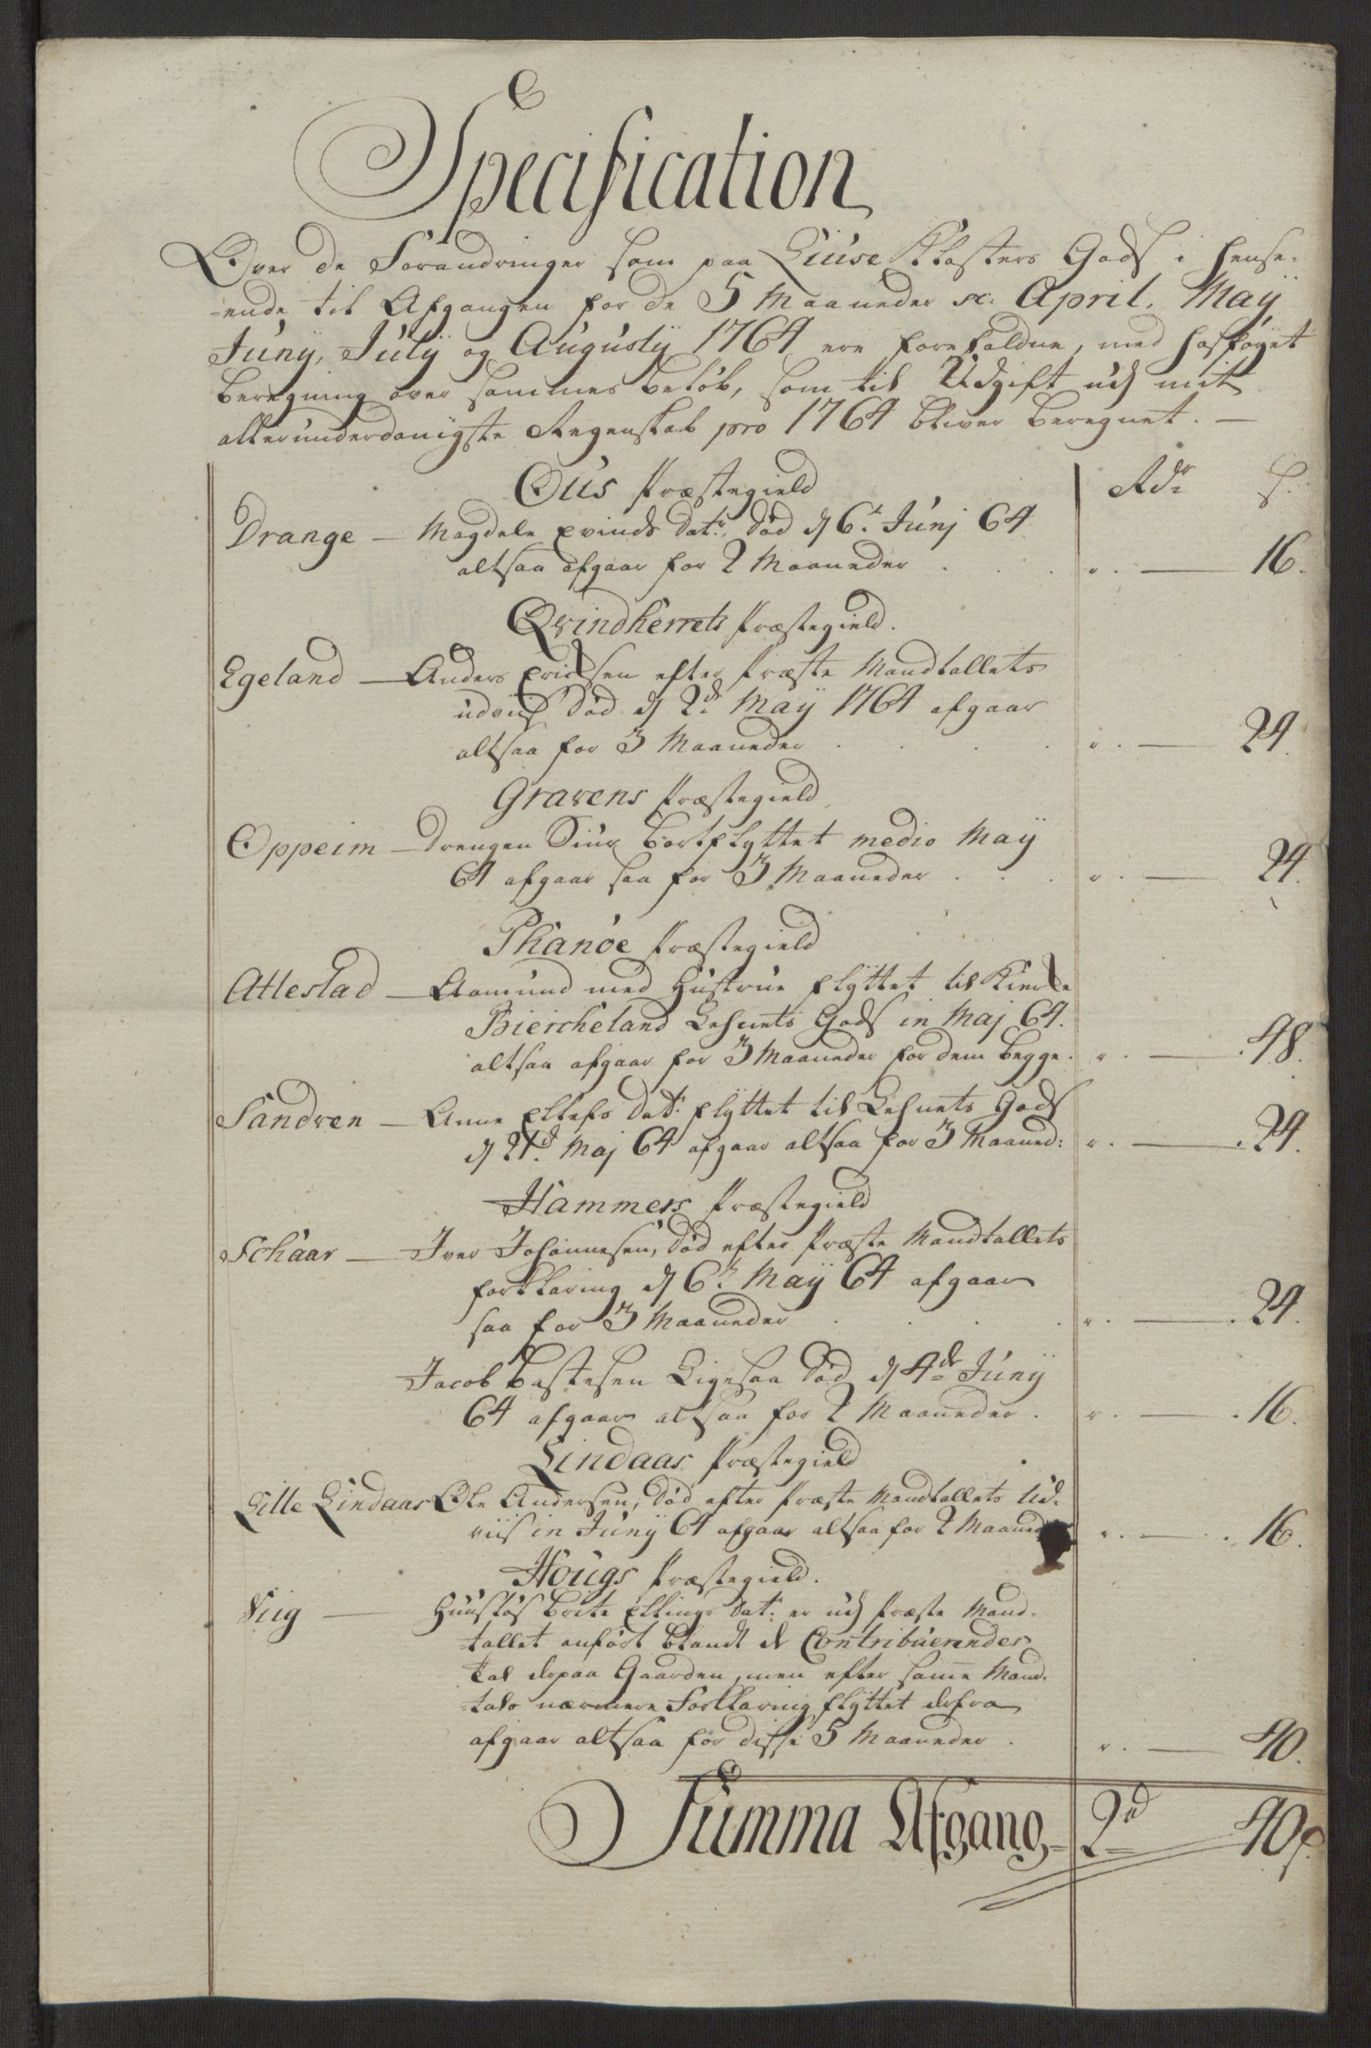 Specification
Over de Forandringer som paa Liuse Klosters Gods i hense-
-ende til Afgangen for de 5 Maaneder sc: April, Maÿ
Junÿ, Julÿ og Augustÿ 1764 ere forefaldne, med hosføÿet
beregning over sammes beløb, som til Udgift udj mit
allerunderdanigste Regenskab pro 1764 bliver beregnet. —
Ous Præstegield Rdr s.
Drange — Magdele Evinds Datr. Død d 6te Junj 64
altsaa afgaar for 2 Maaneder . . . " . — 16.
Qvindherrets Præstegield.
Egeland — Anders Ericksen efter Præste Mandtallets
udviis Død d 2de Maÿ 1764 afgaar
altsaa for 3 Maaneder . . . " . — 24.
Gravens Præstegield
Oppeim — Drengen Siur bortflyttet medio Maÿ
64 afgaar saa for 3 Maaneder . . . " . — 24.
Phanöe Præstegield
Atlestad — Aamund med Hustrue flÿttet til
Biercheland Lehnets Gods in Maj 64.
altsaa afgaar for 3 Maaneder for dem begge. " . — . 48.
Sandven — Anne Ellefs Datr. flÿttet til Lehnets Gods
d 21de Maj 64 afgaar altsaa for 3 Maaned: " . — . 24.
Hammers Præstegield
Schaar — Iver Johannesen, Død efter Præste Mandtallets
forklaring d 6te Maÿ 64 afgaar
saa for 3 Maaneder . . . " . — . 24.
Jacob Bastesen Ligesaa Død d 4de Junÿ
64 afgaar altsaa for 2 Maaneder . " . — . 16.
Lindaas Præstegield
Lille Lindaas Ole Andersen, Død efter Præste Mandtallets Ud-
viis in Junÿ 64 afgaar altsaa for 2 Maaneder " . — . 16.
Hougs Præstegield.
Viig — Huusløs Brite Ellings Datr. er udj Præste Mand-
tallet anført blandt de Contribuerendes
tal derpaa Gaarden, men efter samme Mand-
tals nærmere Forklaring flÿttet derfra
afgaar altsaa for disse 5 Maaneder . " . — 40.
Summa Afgang 2d 40s.